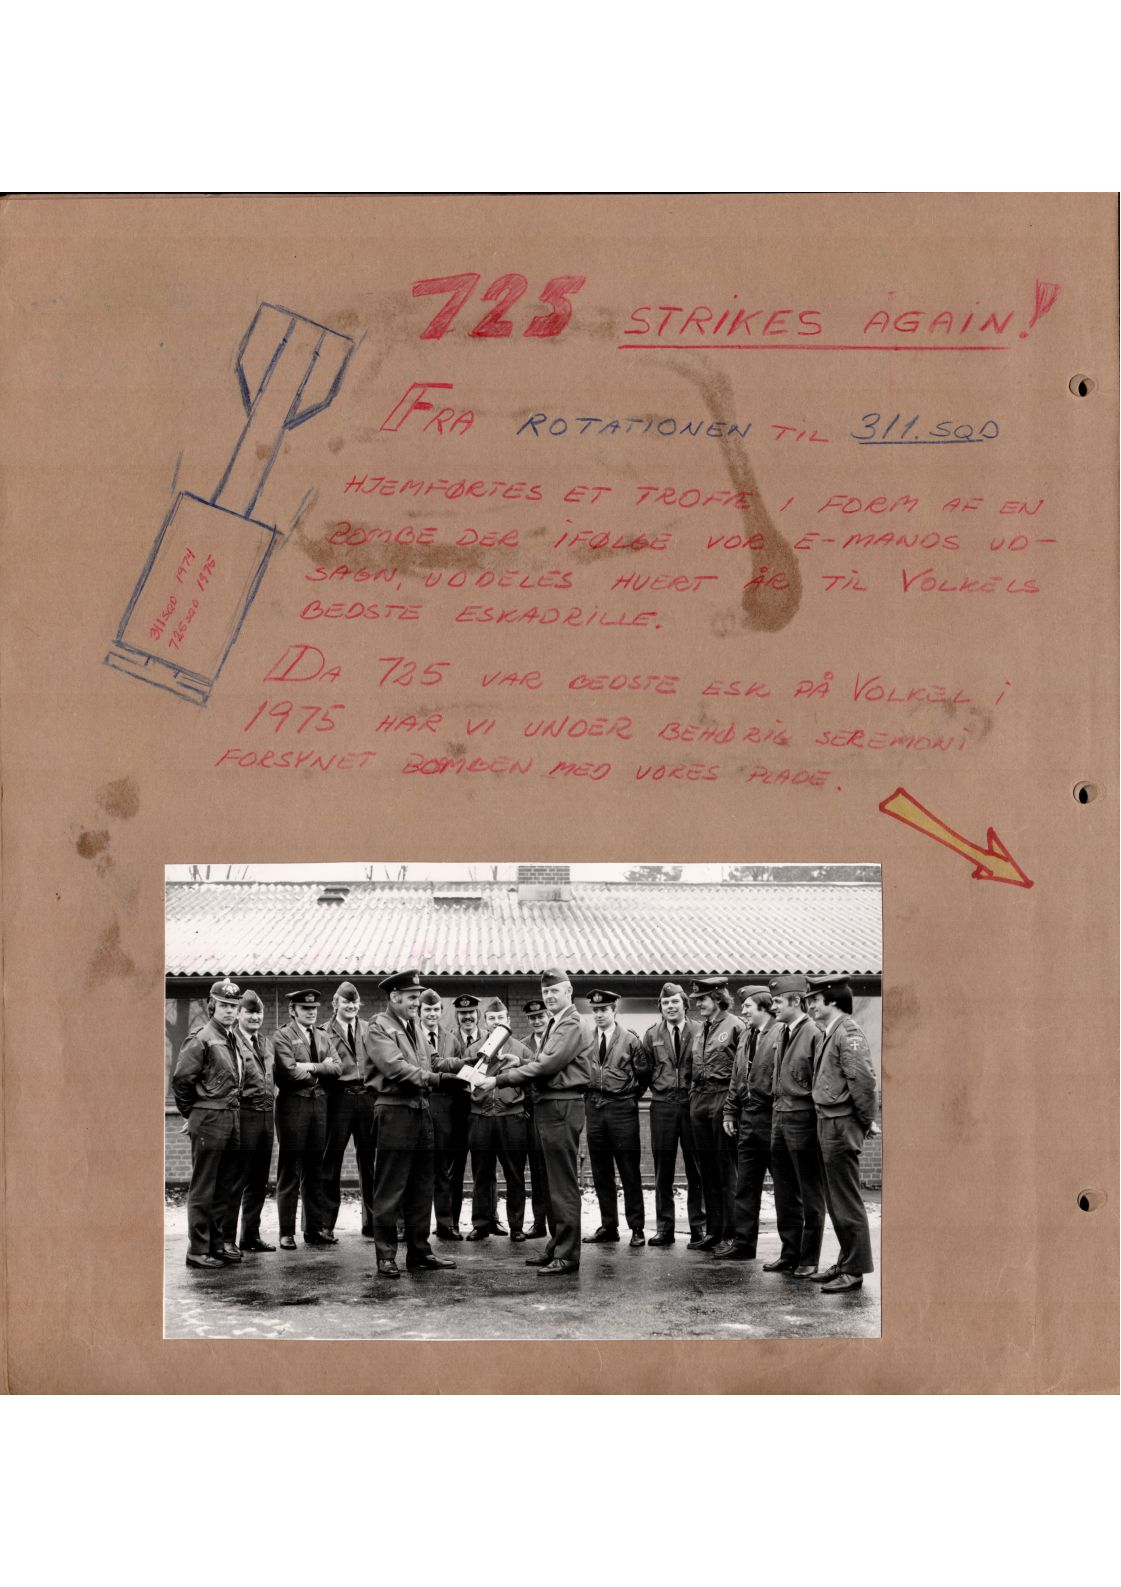 725 STRIKES AGAIN!
FRA ROTATIONEN TIL 311. SQD
HJEMFØRTES ET TROFÆ I FORM AF EN
BOMBE DER IFØLGE VOR E-MANDS UD-
SAGN, UDDELES HVERT ÅR TIL VOLKELS
BEDSTE ESKADRILLE.
311 SQD 1974
725 SQD 1975
DA 725 VAR BEDSTE ESK PÅ VOLKEL I
1975 HAR VI UNDER BEHØRIG SEREMONI
FORSYNET BOMBEN MED VORES PLADE.